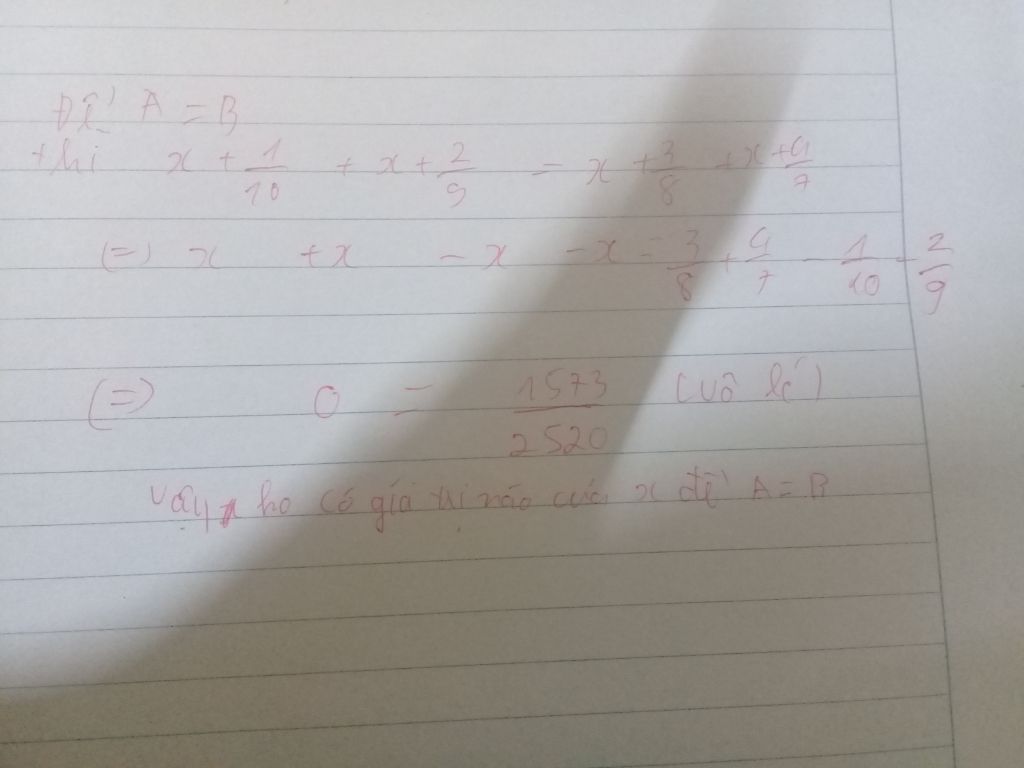 Để A = B
thì x + 1/10 + x + 2/9 = x + 3/8 + x + 4/7
(=) x + x - x - x = 3/8 + 4/7 - 1/10 - 2/9
(=) 0 = 1573/2520 (vô lí)
Vậy ko có giá trị nào của x để A = B